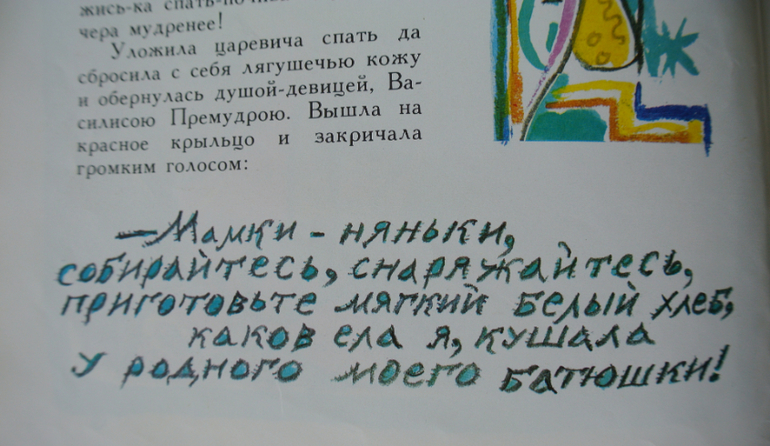 жись-ка спать-по
чера мудренее!
Уложила царевича спать да
сбросила с себя лягушечью кожу
и обернулась душой-девицей, Ва-
силисою Премудрою. Вышла на
красное крыльцо и закричала
громким голосом:
—Мамки - няньки,
собирайтесь, снаряжайтесь,
приготовьте мягкий белый хлеб,
каков ела я, кушала
у родного моего батюшки!